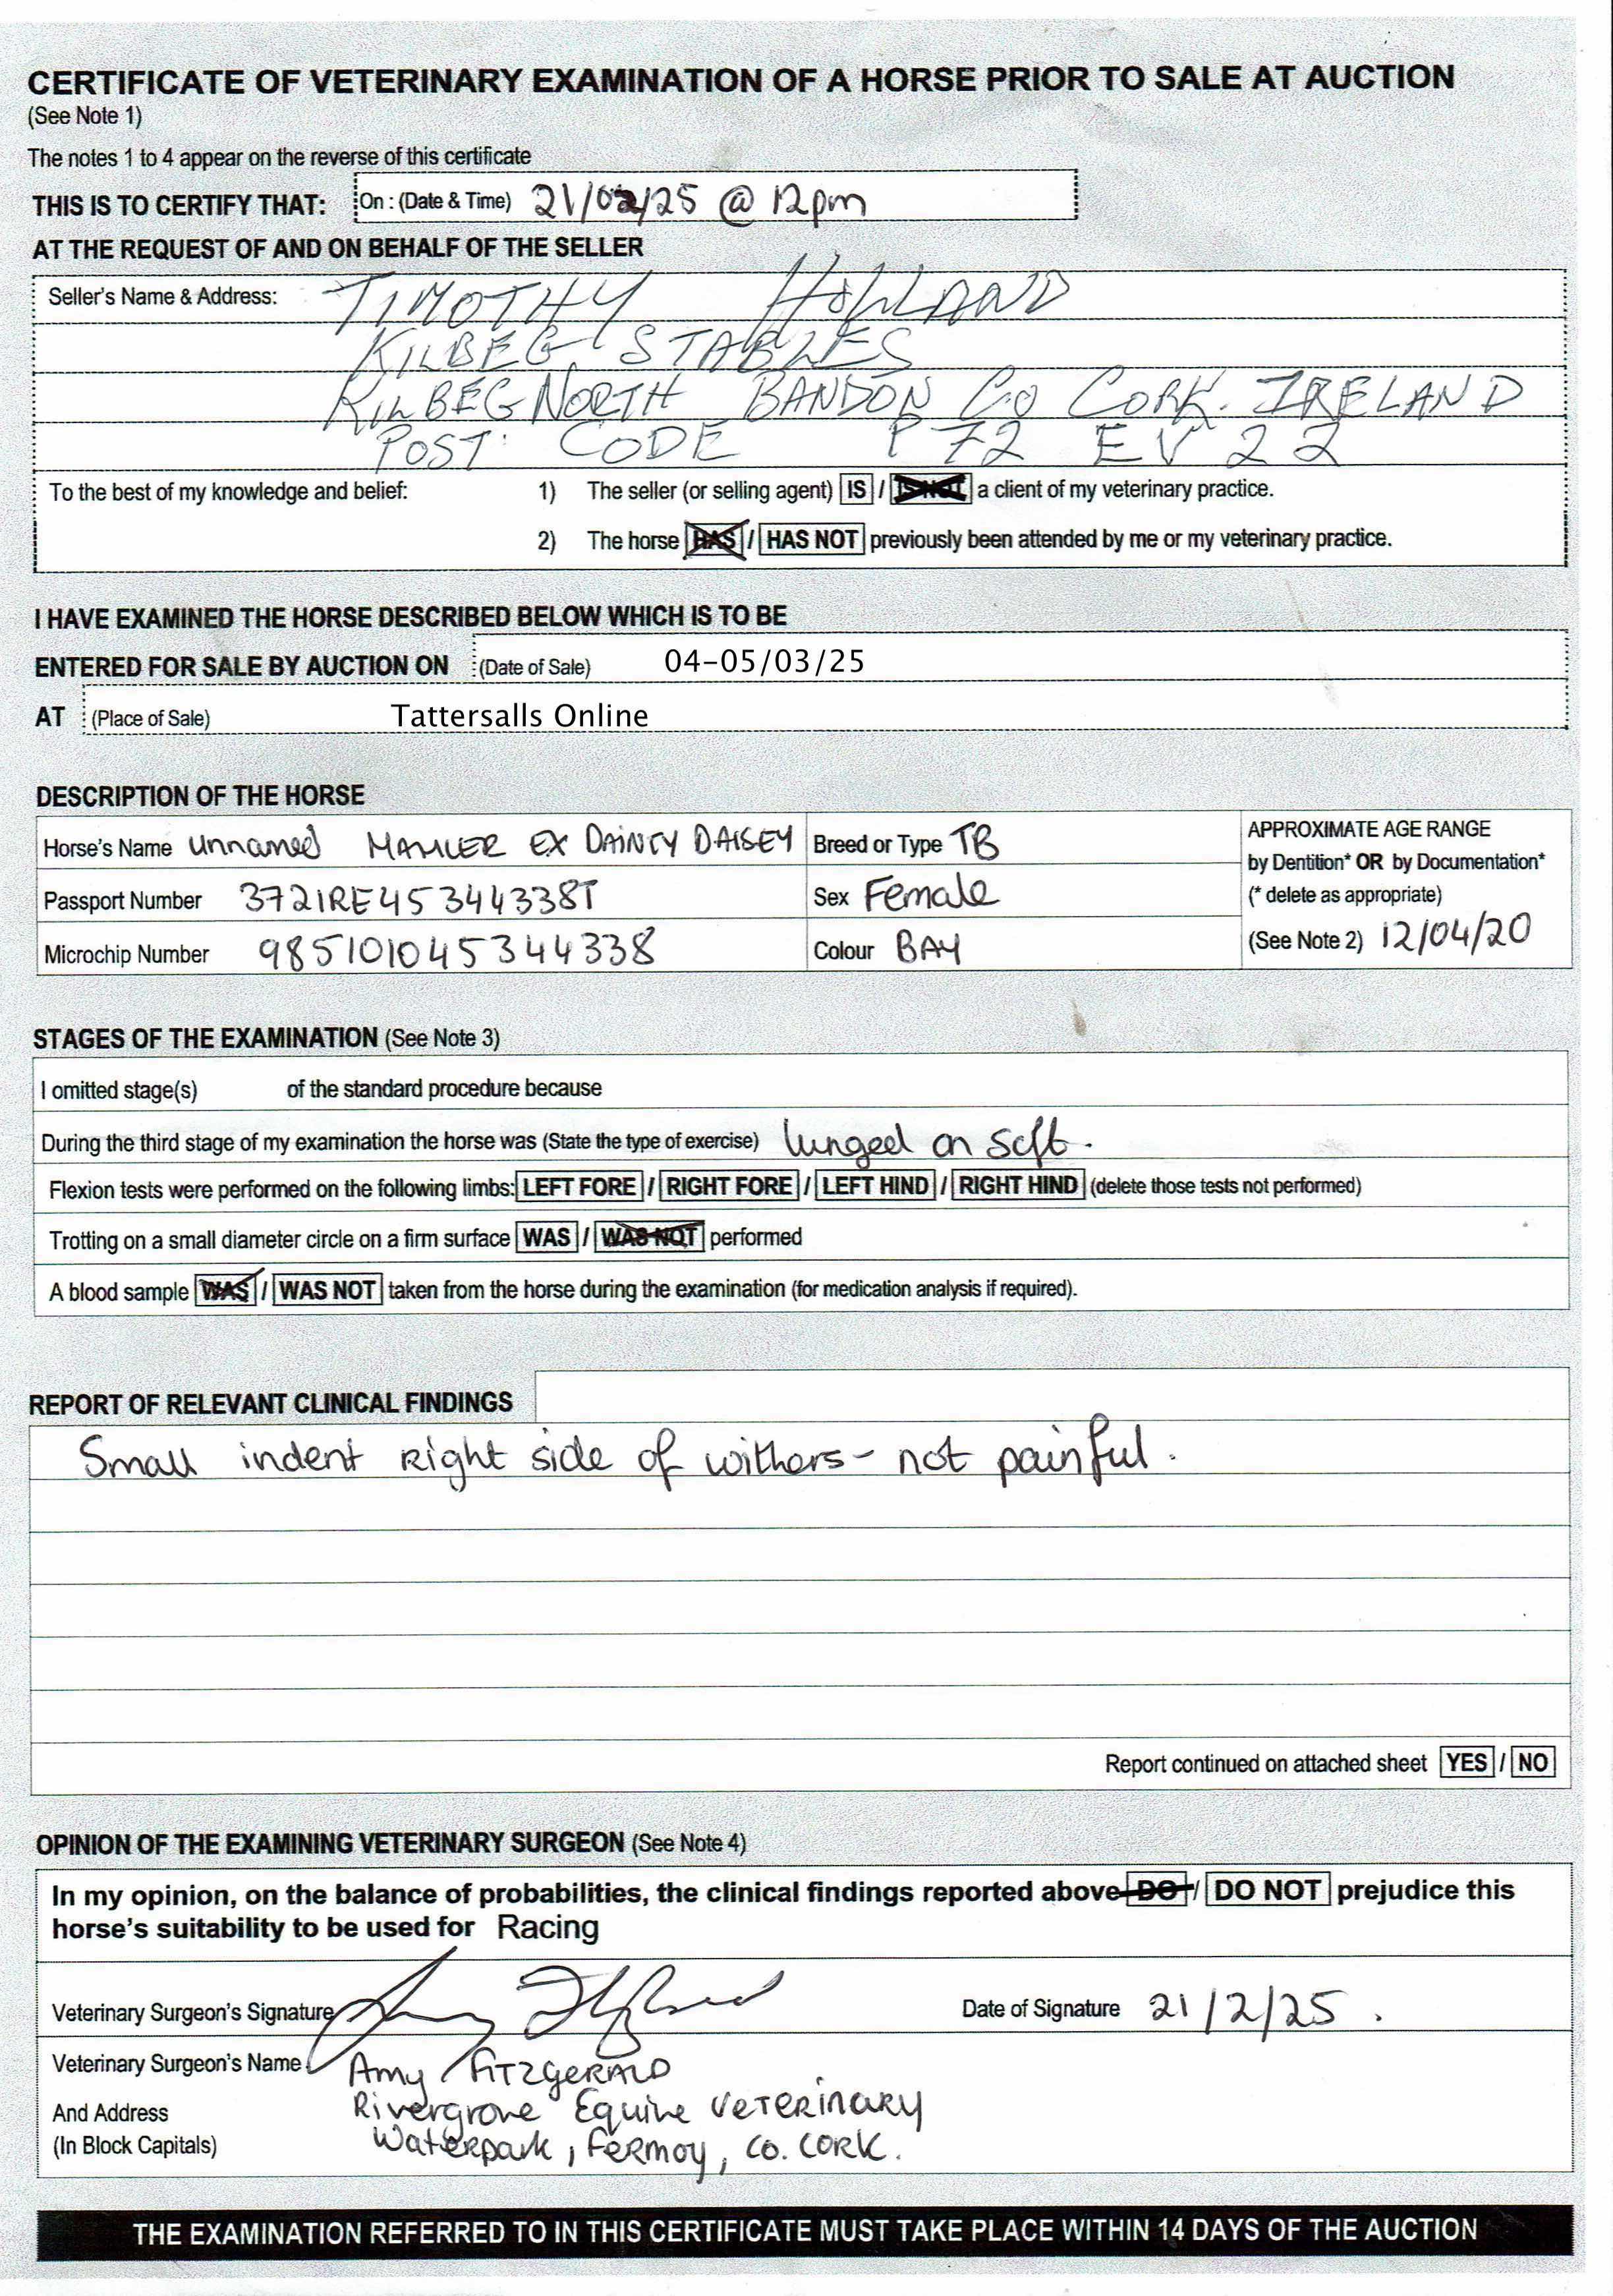 CERTIFICATE OF VETERINARY EXAMINATION OF A HORSE PRIOR TO SALE AT AUCTION
(See Note 1)
The notes 1 to 4 appear on the reverse of this certificate
THIS IS TO CERTIFY THAT: On : (Date & Time) 21/02/25 @ 12pm
AT THE REQUEST OF AND ON BEHALF OF THE SELLER
Seller's Name & Address: TIMOTHY HOLLAND
KILBEG STABLES
KILBEG NORTH BANDON CO CORK. IRELAND
POST CODE P72 EV22
To the best of my knowledge and belief: 1) The seller (or selling agent) IS / IS NOT a client of my veterinary practice.
2) The horse HAS / HAS NOT previously been attended by me or my veterinary practice.
I HAVE EXAMINED THE HORSE DESCRIBED BELOW WHICH IS TO BE
ENTERED FOR SALE BY AUCTION ON (Date of Sale) 04-05/03/25
AT (Place of Sale) Tattersalls Online
DESCRIPTION OF THE HORSE
Horse's Name Unnamed MAHLER EX DAINTY DAISEY Breed or Type TB APPROXIMATE AGE RANGE
by Dentition* OR by Documentation*
Passport Number 372IRE45344338T Sex Female (* delete as appropriate)
Microchip Number 985101045344338 Colour BAY (See Note 2) 12/04/20
STAGES OF THE EXAMINATION (See Note 3)
I omitted stage(s) of the standard procedure because
During the third stage of my examination the horse was (State the type of exercise) lunged on soft.
Flexion tests were performed on the following limbs: LEFT FORE / RIGHT FORE / LEFT HIND / RIGHT HIND (delete those tests not performed)
Trotting on a small diameter circle on a firm surface WAS / WAS NOT performed
A blood sample WAS / WAS NOT taken from the horse during the examination (for medication analysis if required).
REPORT OF RELEVANT CLINICAL FINDINGS
Small indent Right side of withers - not painful.
Report continued on attached sheet YES / NO
OPINION OF THE EXAMINING VETERINARY SURGEON (See Note 4)
In my opinion, on the balance of probabilities, the clinical findings reported above DO / DO NOT prejudice this
horse's suitability to be used for Racing
Veterinary Surgeon's Signature Date of Signature 21/2/25.
Veterinary Surgeon's Name Amy FITZGERALD
And Address Rivergrove Equine VETERINARY
(In Block Capitals) Waterpark, FERMOY, CO. CORK.
THE EXAMINATION REFERRED TO IN THIS CERTIFICATE MUST TAKE PLACE WITHIN 14 DAYS OF THE AUCTION